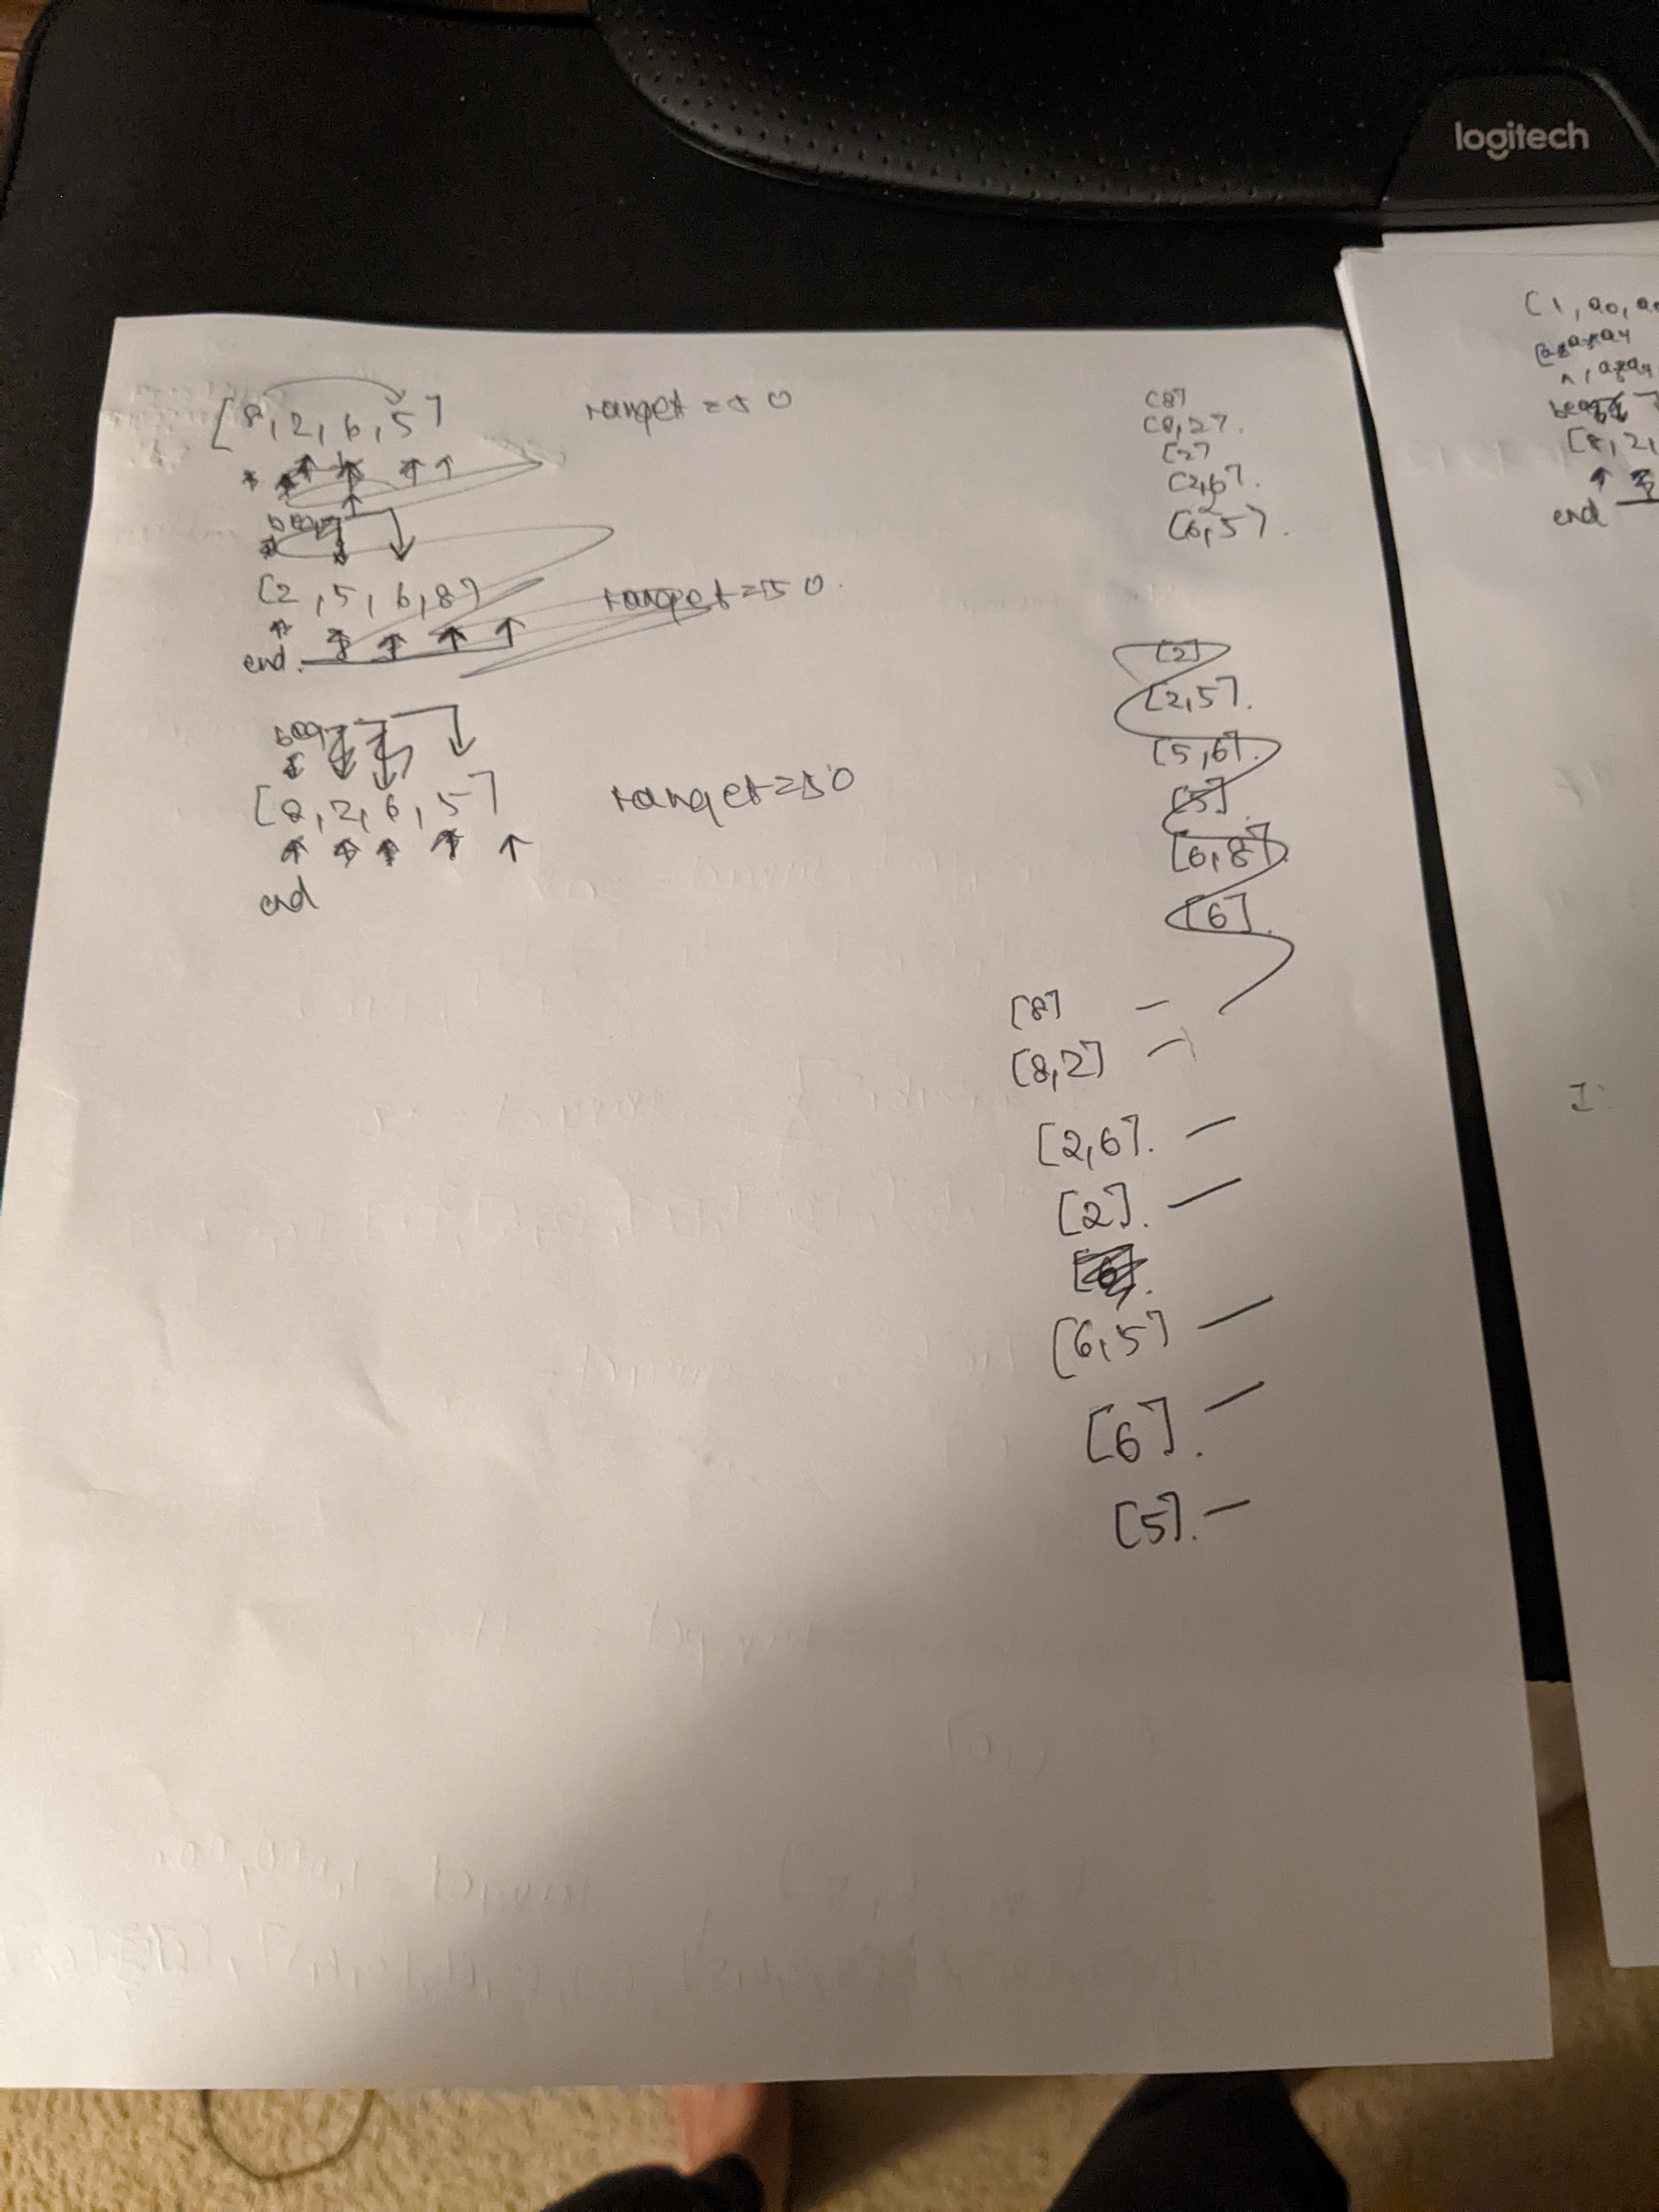 logitech
[8,2,6,5] target=50
beg
[2,5,6,8] target=50.
end.
beg
[8,2,6,5] target=50
end
[8]
[8,2].
[2]
[2,6].
[6,5].
[2]
[2,5].
[5,6].
[5].
[6,8].
[6].
[8] —
[8,2] —
[2,6]. —
[2]. —
[6,5] —
[6]. —
[5]. —
[1, a0,
[8, 2,
end